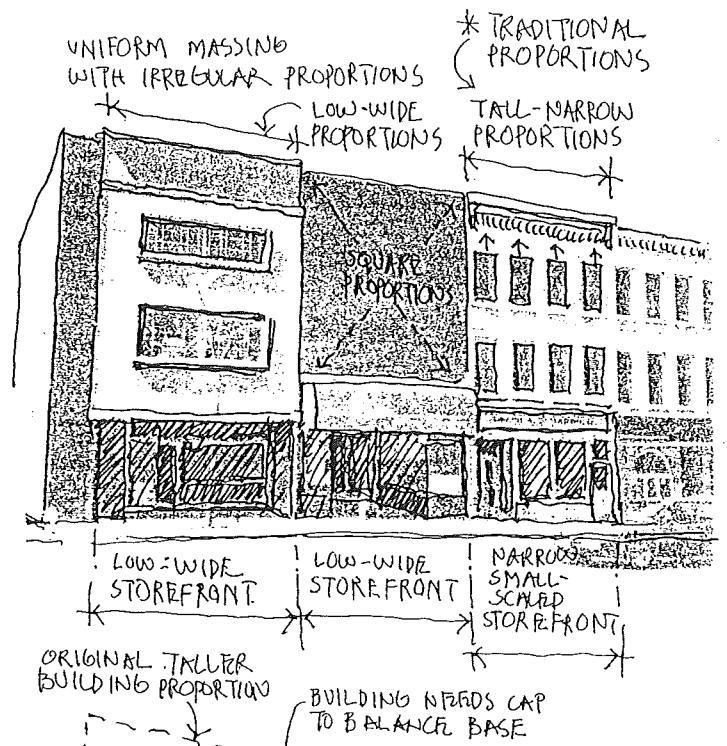 UNIFORM MASSING
WITH IRREGULAR PROPORTIONS
LOW-WIDE
PROPORTIONS
* TRADITIONAL
PROPORTIONS
TALL-NARROW
PROPORTIONS
SQUARE
PROPORTIONS
LOW-WIDE
STOREFRONT
LOW-WIDE
STOREFRONT
NARROW
SMALL-
SCALED
STOREFRONT
ORIGINAL TALLER
BUILDING PROPORTION
BUILDING NEEDS CAP
TO BALANCE BASE